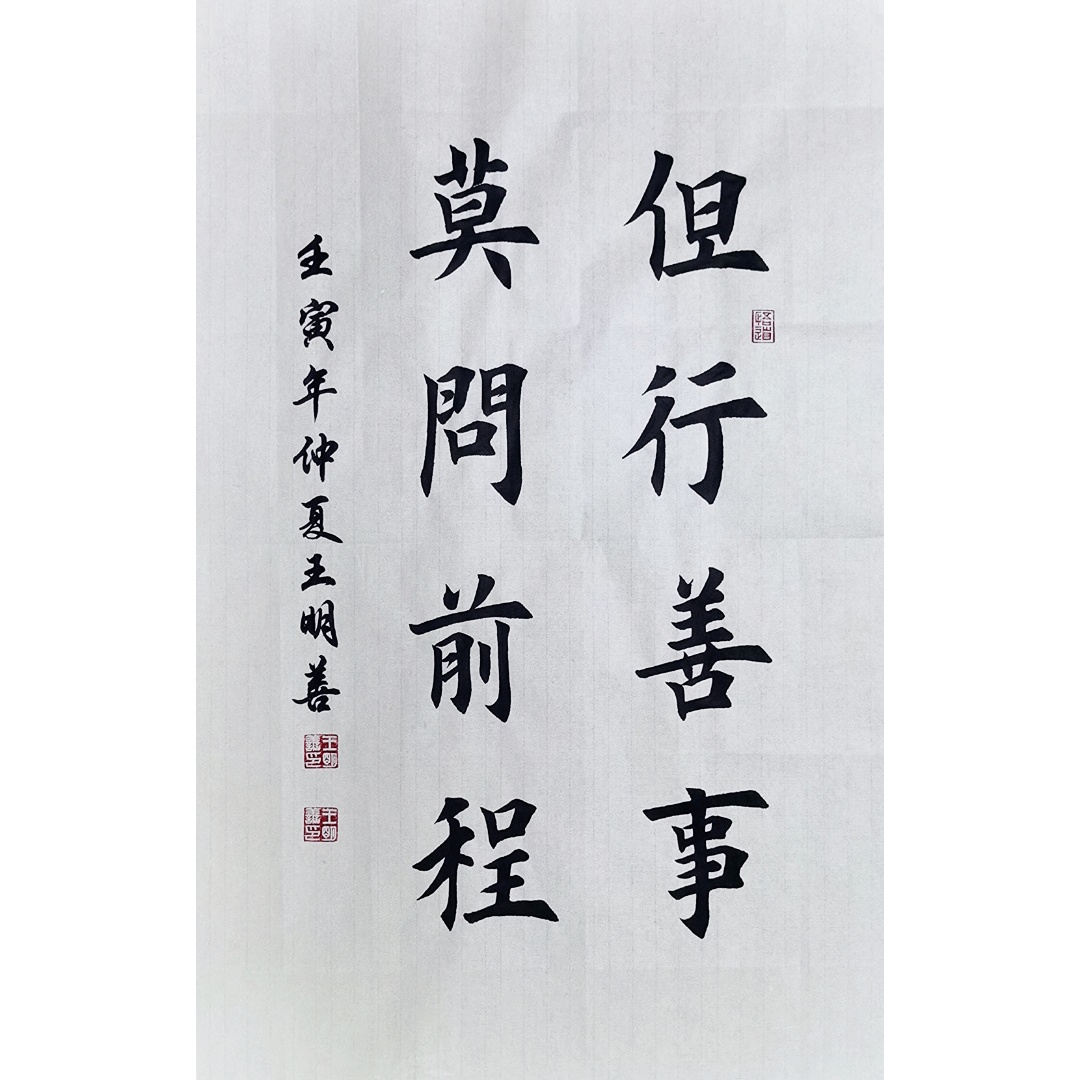 但行善事
莫問前程
壬寅年仲夏王明善
王明善印
王明善印